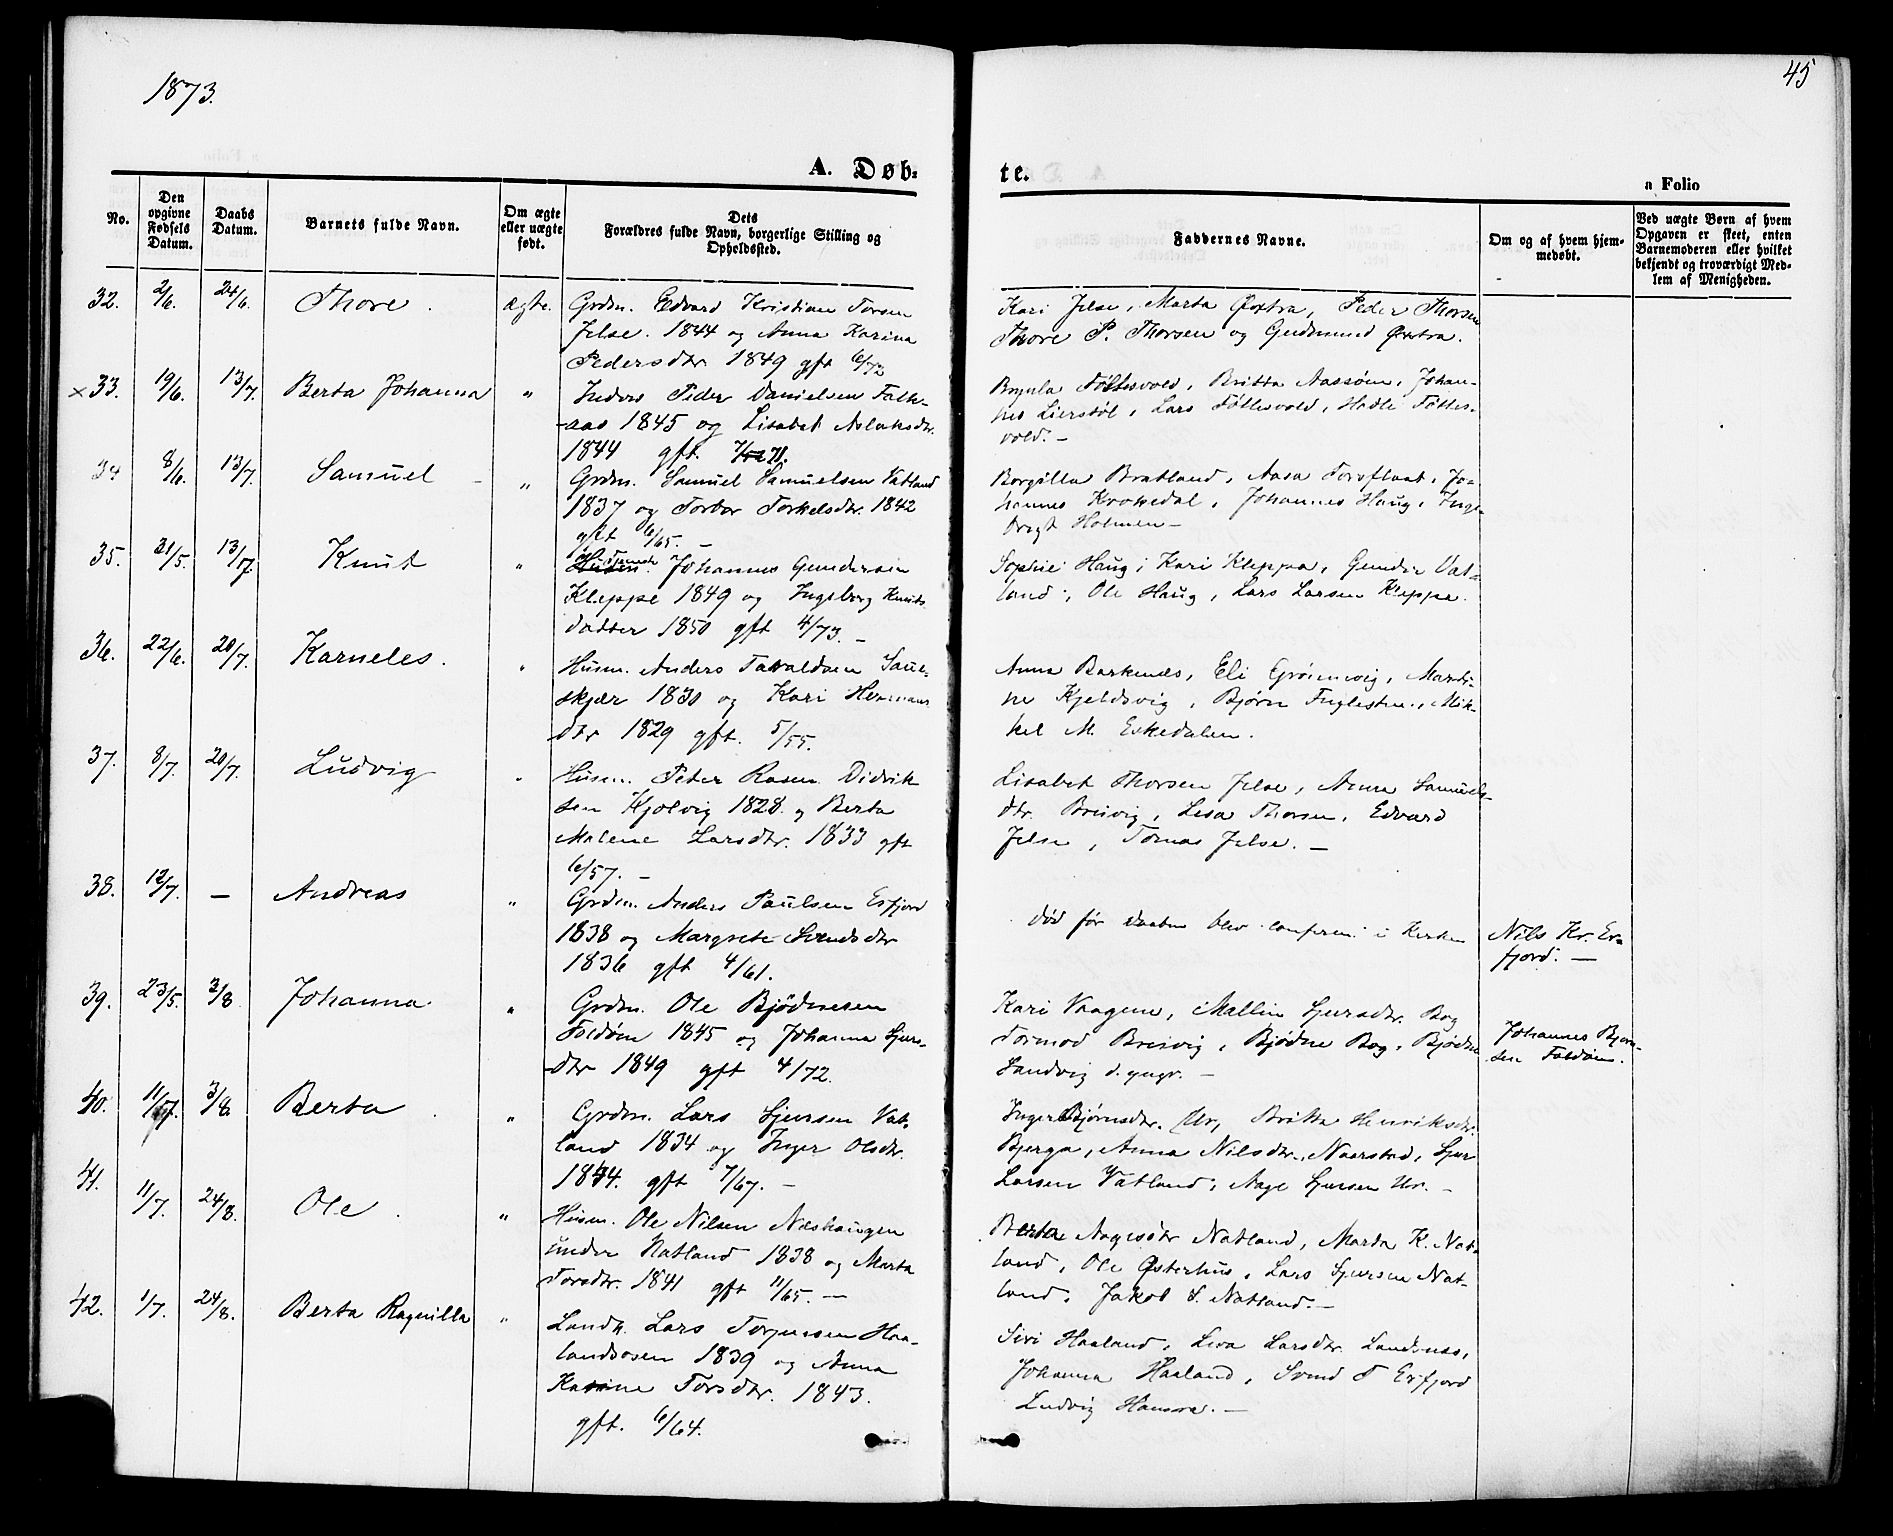 1873.
45
A. Døb-
te.
a Folio
No.
Den opgivne Fødsels Datum.
Daabs Datum.
Barnets fulde Navn.
Om ægte eller uægte født.
Dets Forældres fulde Navn, borgerlige Stilling og Opholdssted.
Faddernes Navne.
Om og af hvem hjemmedøbt.
Ved uægte Børn af hvem Opgaven er skeet, enten Barnemoderen eller hvilket bekjendt og troværdigt Medlem af Menigheden.
32. 2/6. 24/6. Thore. ægte. Grdm. Edvard Kristian Torsen
Jelse. 1844 og Anna Karina
Pedersdtr 1849 gft 6/72
Kari Jelse, Marta Øxtra, Peder Thorsen
Thore P. Thorsen og Gudmund Øxtra.
×33. 19/6. 13/7. Berta Johanna " Inders Peder Danielsen Falk-
aas 1845 og Lisabet Aslaksdtr.
1844 gft. 71.
Føllesvold, Britta Aassøen, Johan-
nes Lierstøl, Lars Føllesvold, Hadle Føttes-
vold. -
34 8/6. 13/7. Samuel - " Grdm. Samuel Samuelsen Vatland
1837 og Torbor Torkelsdtr. 1842
gft 6/65. -
Borgilla Bratland, Aasa Torsflaat, Jo-
hannes Krokedal, Johannes Haug, Inge-
brigt Holmen -
35. 31/5. 13/7. Knut " Johannes Gundersen
Kleppe 1849 og Ingeborg Knuts-
datter 1850 gft 4/73. -
Sophie Haug, Kari Kleppa, Gunder Vat-
land, Ole Haug, Lars Larsen Kleppe.
36. 22/6. 20/7. Karneles. " Husm. Anders Tavaldsen Saue-
skjær 1830 og Kari Hermans
dtr 1829 gft. 5/55.
Anna Barkenæs, Eli Grønnevig, Marti-
ne Kjeldsvig, Bjørn Fuglesten, Mik-
kel M. Eskedalen.
37. 8/7. 20/7. Ludvig " Husm. Peter Rasm Didrik
sen Kjølvig 1828. og Berta
Malene Larsdtr. 1833 gft
6/57. -
Lisabet Thorsen Jelse, Anna Samuels-
dtr. Breivig, Lisa Thorsen, Edvard
Jelse, Tomas Jelse. -
38. 12/7. - Andreas " Grdm. Anders Paulsen Erfjord
1838 og Margrete Svendsdtr
1836 gft 4/61.
død før daaben blev conferm. i Kirken
Nils Kr. Er-
fjord. -
39. 23/5. 3/8. Johanna " Grdm. Ole Bjødnesen
Foldøen 1845 og Johanna Sjurs-
dtr 1849 gft 4/72.
Kari Vaagene, Mallin Sjursdtr. Bog
Tormod Breivig, Bjødne Bog, Bjødne
Sandvig d. yngr. -
Johannes Bjørn-
sen Foldøen.
40. 11/7. 3/8. Berta. " Grdm. Lars Sjursen Vat-
land 1834 og Inger Olsdtr.
1844. gft 7/67. -
Inger Bjørnsdtr. Ur, Britta Henriksdtr.
Bjerga, Anna Nilsdtr. Naerstad, Sjur
Larsen Vatland, Aage Sjursen Ur. -
41. 11/7. 24/8. Ole. " Husm. Ole Nilsen Næshaugen
under Natland 1838 og Marta
Torsdtr. 1841 gft 11/65. -
Berta Aagesdtr Natland, Marta K. Nat-
land, Ole Østerhus, Lars Sjursen Nat-
land, Jakob S. Natland. -
42. 1/7. 24/8. Berta Ragnilla " Landh. Lars Torjussen Haa-
landsosen 1839 og Anna
Katrine Torsdtr. 1843.
gft. 6/64.
Siri Haaland, Lisa Larsdtr Landsnæs,
Johanna Haaland, Svend T Erfjord
Ludvig Hansen. -